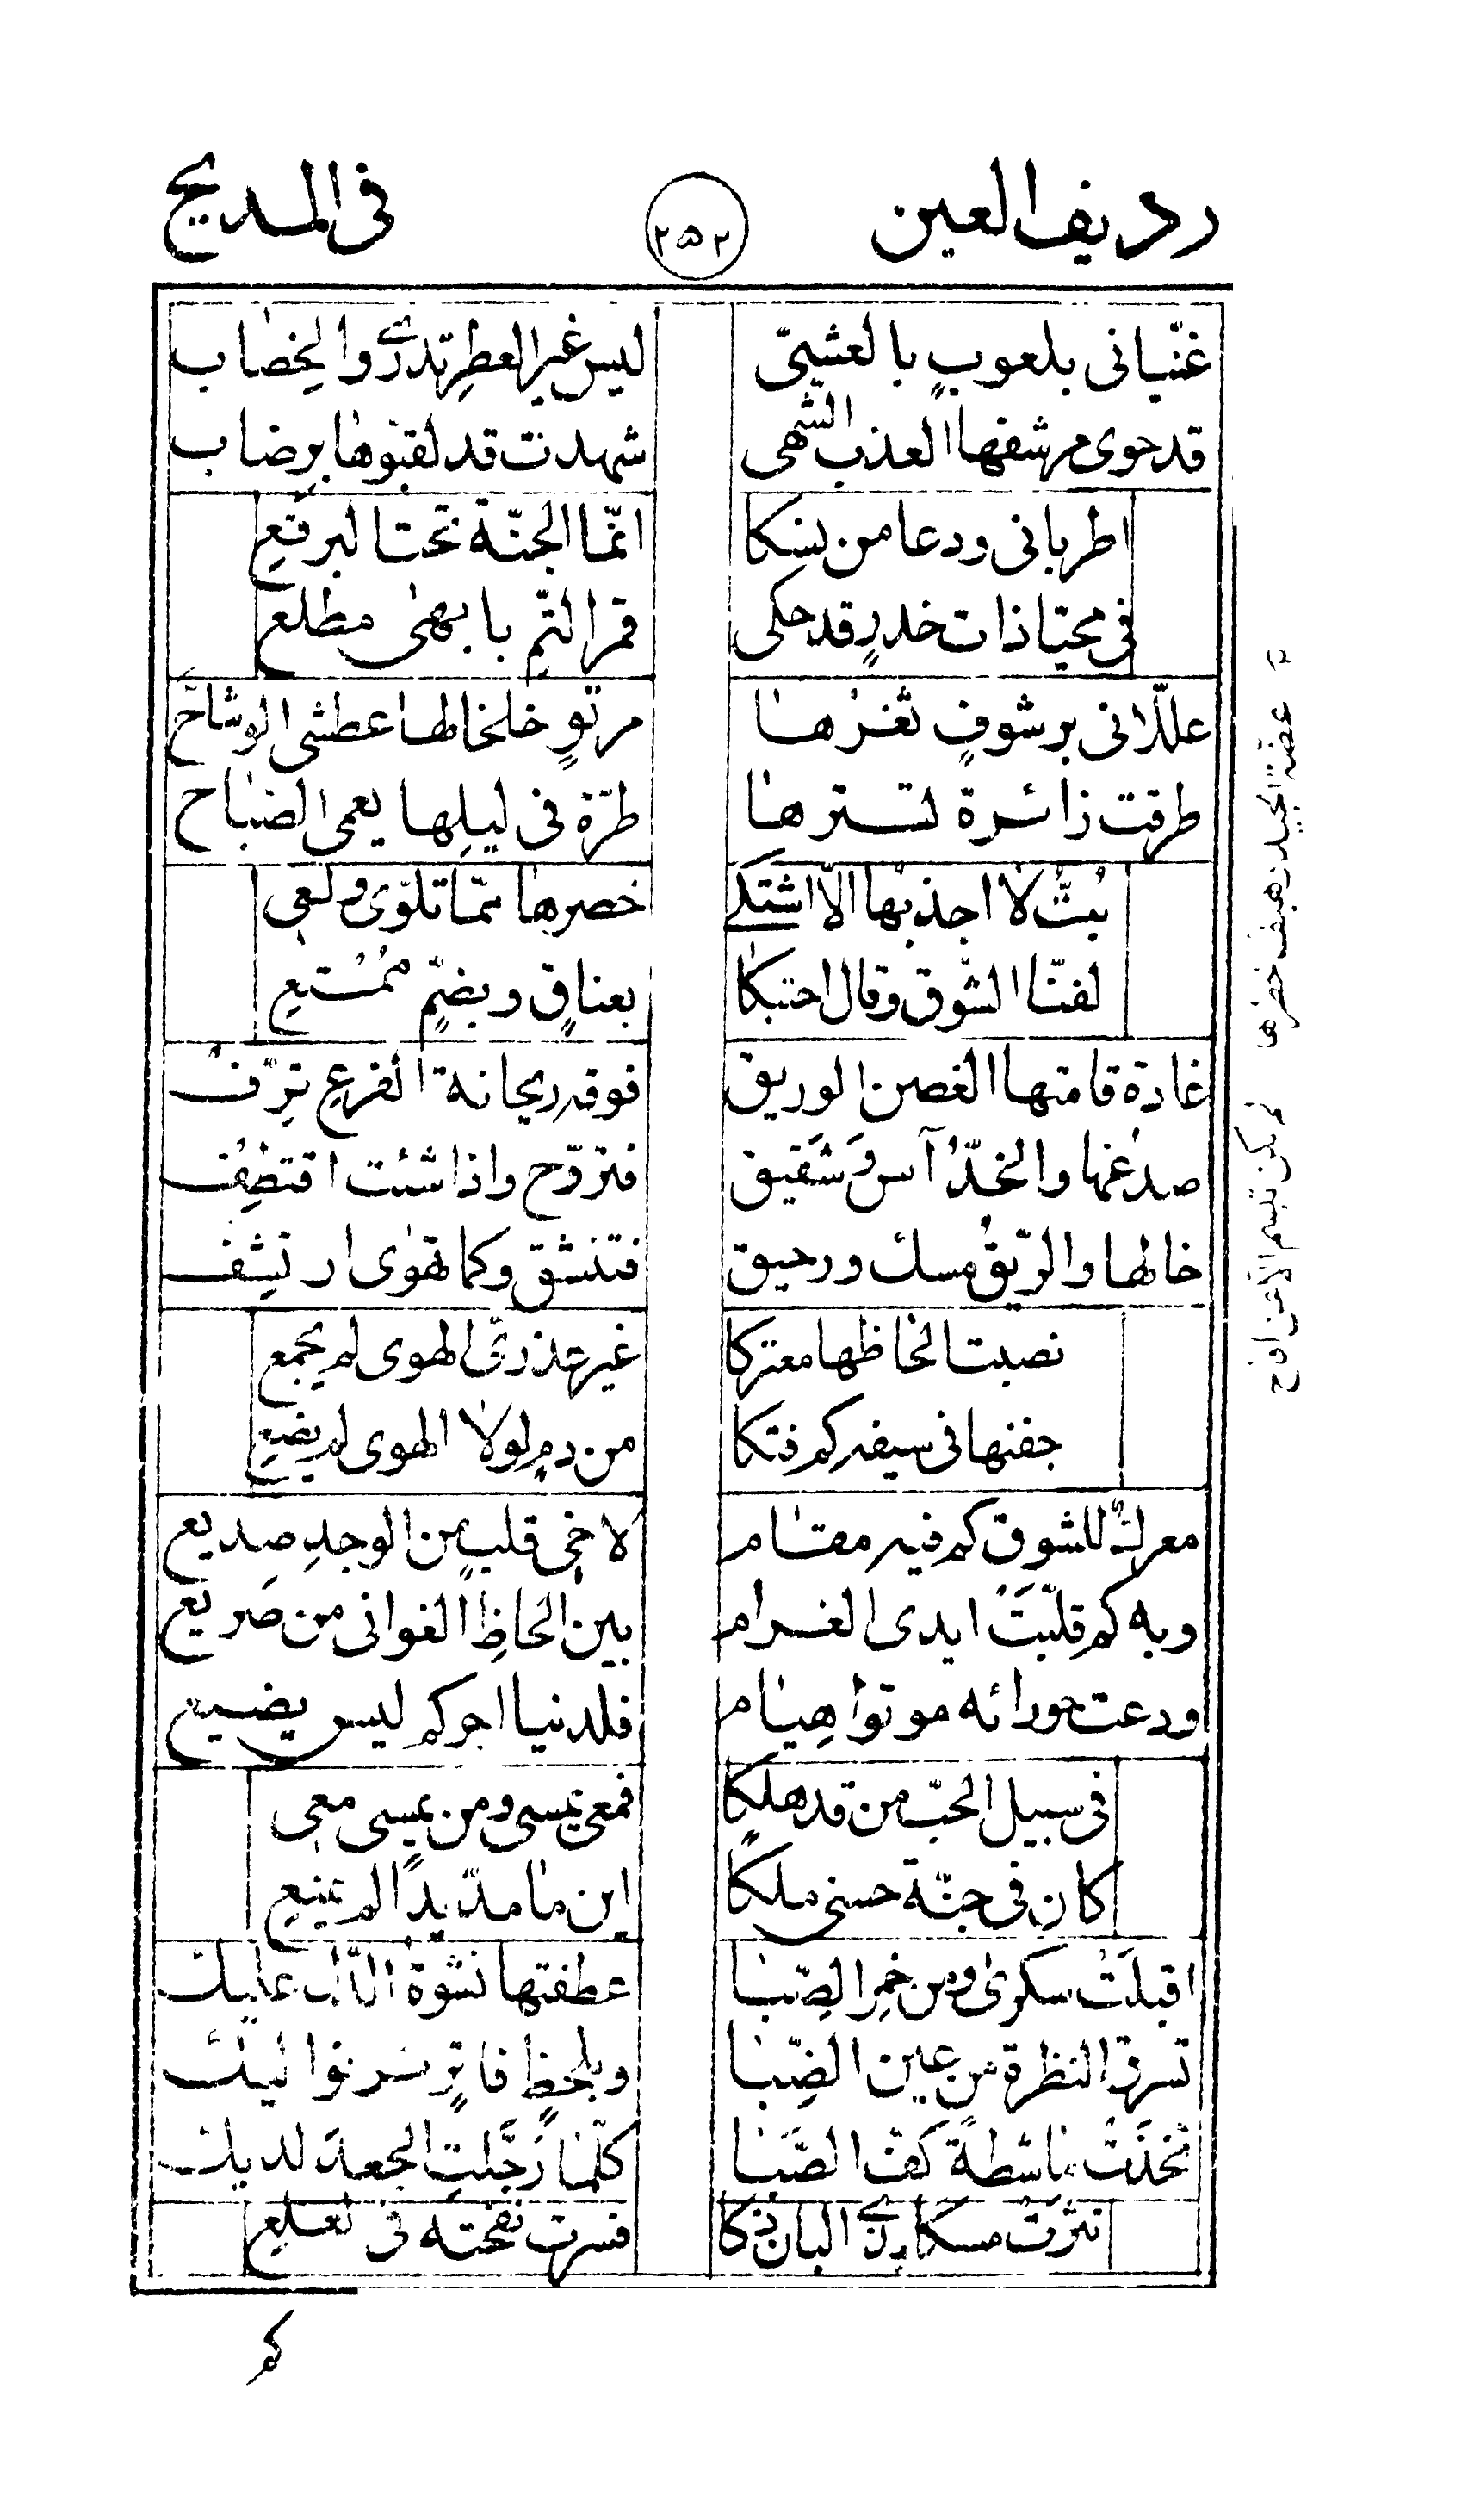 رديف العين ٢٥٢ في المديح
غنّياني بلعوبٍ بالعشيّ ليس غير العطرِ تدري والخِضاب
قد حوى مرشفها العذب الشهي شهدت قد لقبّوها برضاب
اطرباني ودعا من نسكا انّما الجنّة تحت البرقعِ
في محيّا ذات خدرٍ قد حكى قمر التّمِ بابهى مطلعِ
علّلاني برشوفٍ ثغرها مرتوٍ خلخالها عطشى الوشاح
طرقت زائرة تسترها طرّة في ليلِها يعمى الصباح
بتُّ لا اجذبها الّا اشتكى خصرها ممّا تلوّى ولعي
لفنّا الشوق وقال احتبكا بعناقٍ وبضمٍّ مُمْتعِ
غادة قامتها الغصن الوريق فوقه ريحانة الفرعِ ترفّ
صدغها والخدّ آس وشقيق فتروّح واذا شئت اقتطف
خالها والريق مسك ورحيق فتنشّق وكما تهوى ارتشف
نصبت الحاظها معتركا غير عذريّ الهوى لم يجمع
جفنها في سيفه كم فتكا من دمٍ لولا الهوى لم يضعِ
معرك للشوق كم فيه مقام لاخي قلبٍ من الوجدِ صديع
وبه كم قلّبت ايدي الغرام بين الحاظِ الغواني من صريع
ودعت حورائه موتوا هيام فلدنيا اجركم ليس يضيع
في سبيل الحبّ من قد هلكا فمعي يمسي ومن يمسي معي
كان في جنّة حسني ملكا اين ما مدّ يداً لم يمنع
اقبلت سكرى ومن خمرِ الصِبا عطفتها نشوة الدّلّ عليك
تسرق النظرة من عين الظِبا وبلحظٍ فاترٍ ترنوا اليك
تخذت ماشطةً كفّ الصَبا كلّما رجّلتِ الجعد لديك
نثرت مسكا بذي البان ذكا فسرت نفحته في لعلعِ
كم
غضّة الجيد رهيف خصرها
لم يكن تبسم الّا عن اقاح